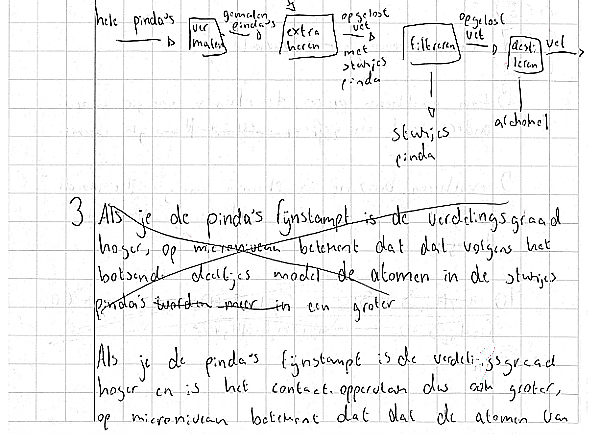 hele pinda's
ver
malen
gemalen
pinda's
extra
heren
opgelost
vet
met
stukjes
pinda
filtreren
opgelost
vet
desti
leren
vet
stukjes
pinda
alchohol
3 Als je de pinda's fijnstampt is de verdelingsgraad
hoger, op microniveau betekent dat dat volgens het
botsende deeltjes model de atomen in de stukjes
pinda's worden meer in een groter
Als je de pinda's fijnstampt is de verdelingsgraad
hoger en is het contact.oppervlak dus ook groter,
op microniveau betekent dat dat de atomen van